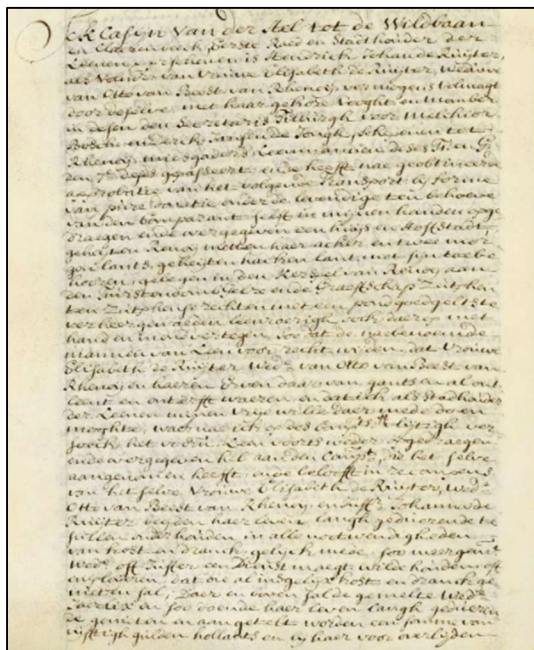 Ick Casijn van der Stel tot de Wildbaan
en Claerenbeeck, Eerste Raed en Stadthouder der
Leenen, is Hendrick Johan de Ruijter,
als Volmr van Vrouwe Elisabeth de Ruijter, Weduwe
van Otto van Beest van Rhenoij vermogens volmagt
door deselve, met haar gehoore Vooght en momber
in desen den Secretaris voor Melchior
en Dirck Jansen de Jongh, schepenen tot
Rhenoij, mitsgaders Leenmannen
den 7e deses gepasseert, ende heefft nae geobtineerde
approbatie van het volgende Transport bij forme
van pure donatie onder de levendige ten behoeve
van den Comparant, selff in mijnen handen opge
draegen ende overgegeven een huijs en Hoffstadt,
geheijten Renoij met en haer acker en twee mor
gen lants, geheijten lant, met sijn toebe
hooren, gelegen in den Kerspel van Renoij aen
een Furstendom Gelre ende Graeffschap Zutphen
ten Zutphense rechten met een pond goedgelts te
verheergewaeden leenroerigh, ook daerop met
hand en mond vertegen, soo dat de naebenoemde
mannen van Leen voor recht wijsden, dat Vrouwe
Elisabeth de Ruijter Wede van Otto van Beest van
Rhenoij en haeren Erven daar van gants en al ont
leent en ont erfft waeren en dat ick als Stadhouder
der Leenen mijnen vrije wille daer mede doen
moghte, waer nae ick op des Compts vlijtigh ver
soeck het voors. Leen voorts weder opgedraegen
ende overgegeven heb aan den Compt, die het selve
aangenomen heefft, ende belooft in recompens
van het selve Vrouwe Elisabeth de Ruijter, Wede
Otto van Beest van Rhenoij, en Juffr. Johanna de
Ruijter beijden haer leven langh geduerende te
sullen onderhouden, in alle nootwendigheden
van kost en dranck, gelijck mede, soo meergem.
Wede off Juffer een Dienst maegt wilde houden off
emploieren, dat die al insgelijx kost en dranck ge
nieten sal, Daer en boven sal de gemelte Wede
en soo doende haer leven langh geduerende
te genieten en aangetelt worden een somme van
vijfftigh gulden hollants en bij haer voor overlijden